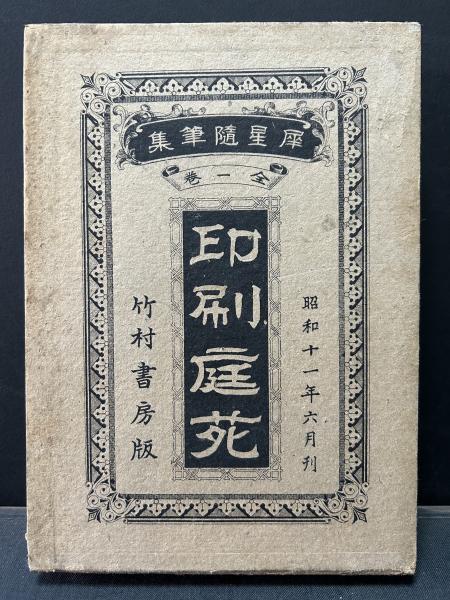 犀星隨筆集
全一卷
印刷庭苑
昭和十一年六月刊
竹村書房版